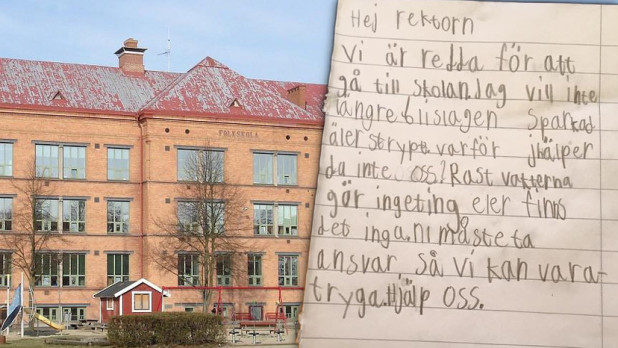 FOLKSKOLA
Hej rektorn
Vi är redda för att
gå till skolan.Jag vill inte
längre blislagen sparkad
äler strypt varför jhälper
da inte oss? Rast vakterna
gör ingeting eler finns
det inga.ni måste ta
ansvar så vi kan vara
tryga.Hjälp oss.